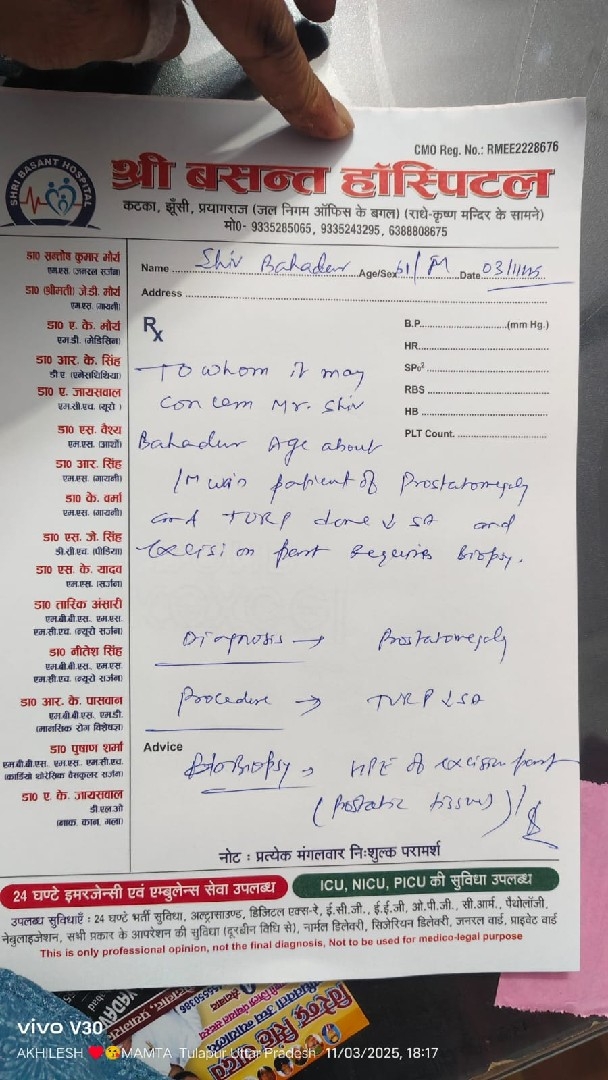 CMO Reg. No.: RMEE2228676
SHRI BASANT HOSPITAL
श्री बसन्त हॉस्पिटल
कटका, झूँसी, प्रयागराज (जल निगम ऑफिस के बगल) (राधे-कृष्ण मन्दिर के सामने)
मो0- 9335285065, 9335243295, 6388808675
डा0 सन्तोष कुमार मौर्य
एम.एस. (जनरल सर्जन)
डा0 (श्रीमती) जे.डी. मौर्य
एम.एस. (गायनी)
डा0 ए. के. मौर्य
एम.डी. (मेडिसिन)
डा0 आर. के. सिंह
डी.ए. (एनेसथिथिया)
डा0 ए. जायसवाल
एम.सी.एच. (यूरो)
डा0 एस. वैश्य
एम.एस. (आर्थो)
डा0 आर. सिंह
एम.एस. (गायनी)
डा0 के. वर्मा
एम.एस. (गायनी)
डा0 एस. जे. सिंह
डी.सी.एच. (पीडिया)
डा0 एस. के. यादव
एम.एस. (सर्जन)
डा0 तारिक अंसारी
एम.बी.बी.एस. एम.एस.
एम.सी.एच. (न्यूरो सर्जन)
डा0 नीतेश सिंह
एम.बी.बी.एस. एम.एस.
एम.सी.एच. (न्यूरो सर्जन)
डा0 आर. के. पासवान
एम.बी.बी.एस. एम.डी.
(मानसिक रोग विशेषज्ञ)
डा0 पुषाण शर्मा
एम.बी.बी.एस. एम.एस. एम.सी.एच.
(कार्डियो थोरेसिक वैसकुलर सर्जन)
डा0 ए. के. जायसवाल
डी.एल.ओ
(नाक, कान, गला)
Name Shiv Bahadur Age/Sex 61/M Date 03/11/25
Address
Rx
B.P. (mm Hg.)
HR
SPo²
RBS
HB
PLT Count.
To whom it may
concern Mr. Shiv
Bahadur Age about
/M was patient of Prostatomegaly
and TURP done SA and
excision part requires Biopsy.
Diagnosis → Prostatomegaly
Procedure → TURP SA
Advice
Biopsy → HPE of excision part
(Prostatic tissues)
नोट : प्रत्येक मंगलवार निःशुल्क परामर्श
24 घण्टे इमरजेन्सी एवं एम्बुलेन्स सेवा उपलब्ध
ICU, NICU, PICU की सुविधा उपलब्ध
उपलब्ध सुविधाएँ : 24 घण्टे भर्ती सुविधा, अल्ट्रासाउण्ड, डिजिटल एक्स-रे, ई.सी.जी., ई.ई.जी, ओ.पी.जी., सी.आर्म., पैथोलॉजी,
नेबुलाइजेशन, सभी प्रकार के आपरेशन की सुविधा (दूरबीन विधि से), नार्मल डिलेवरी, सिजेरियन डिलेवरी, जनरल वार्ड, प्राइवेट वार्ड
This is only professional opinion, not the final diagnosis, Not to be used for medico-legal purpose
vivo V30
AKHILESH ❤️😘MAMTA Tulapur Uttar Pradesh 11/03/2025, 18:17